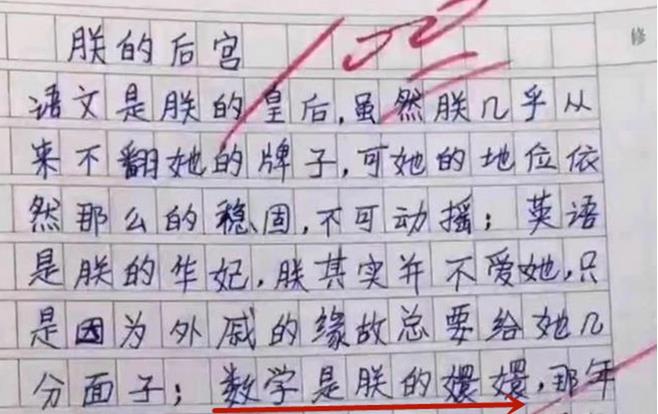 朕的后宫
100
修
语文是朕的皇后,虽然朕几乎从
来不翻她的牌子,可她的地位依
然那么的稳固,不可动摇;英语
是朕的华妃,朕其实并不爱她,只
是因为外戚的缘故总要给她几
分面子;数学是朕的嬛嬛,那年